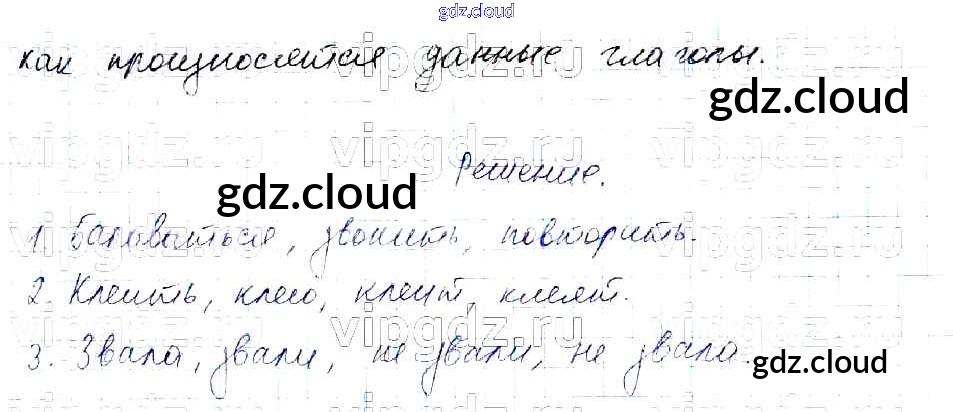 gdz.cloud
как произносятся данные глаголы.
gdz.cloud
vipgdz.ru
Решение.
gdz.cloud
1. Баловаться, звонить, повторить.
2. Клеить, клею, клеит, клеят.
vipgdz.ru
3. Звала, звали, не звали, не звала.
gdz.cloud